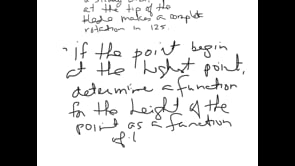 at the tip of the
blade makes a complet
rotation in 12s.
If the point begin
at the highest point,
determine a function
for the height of the
point as a function
of